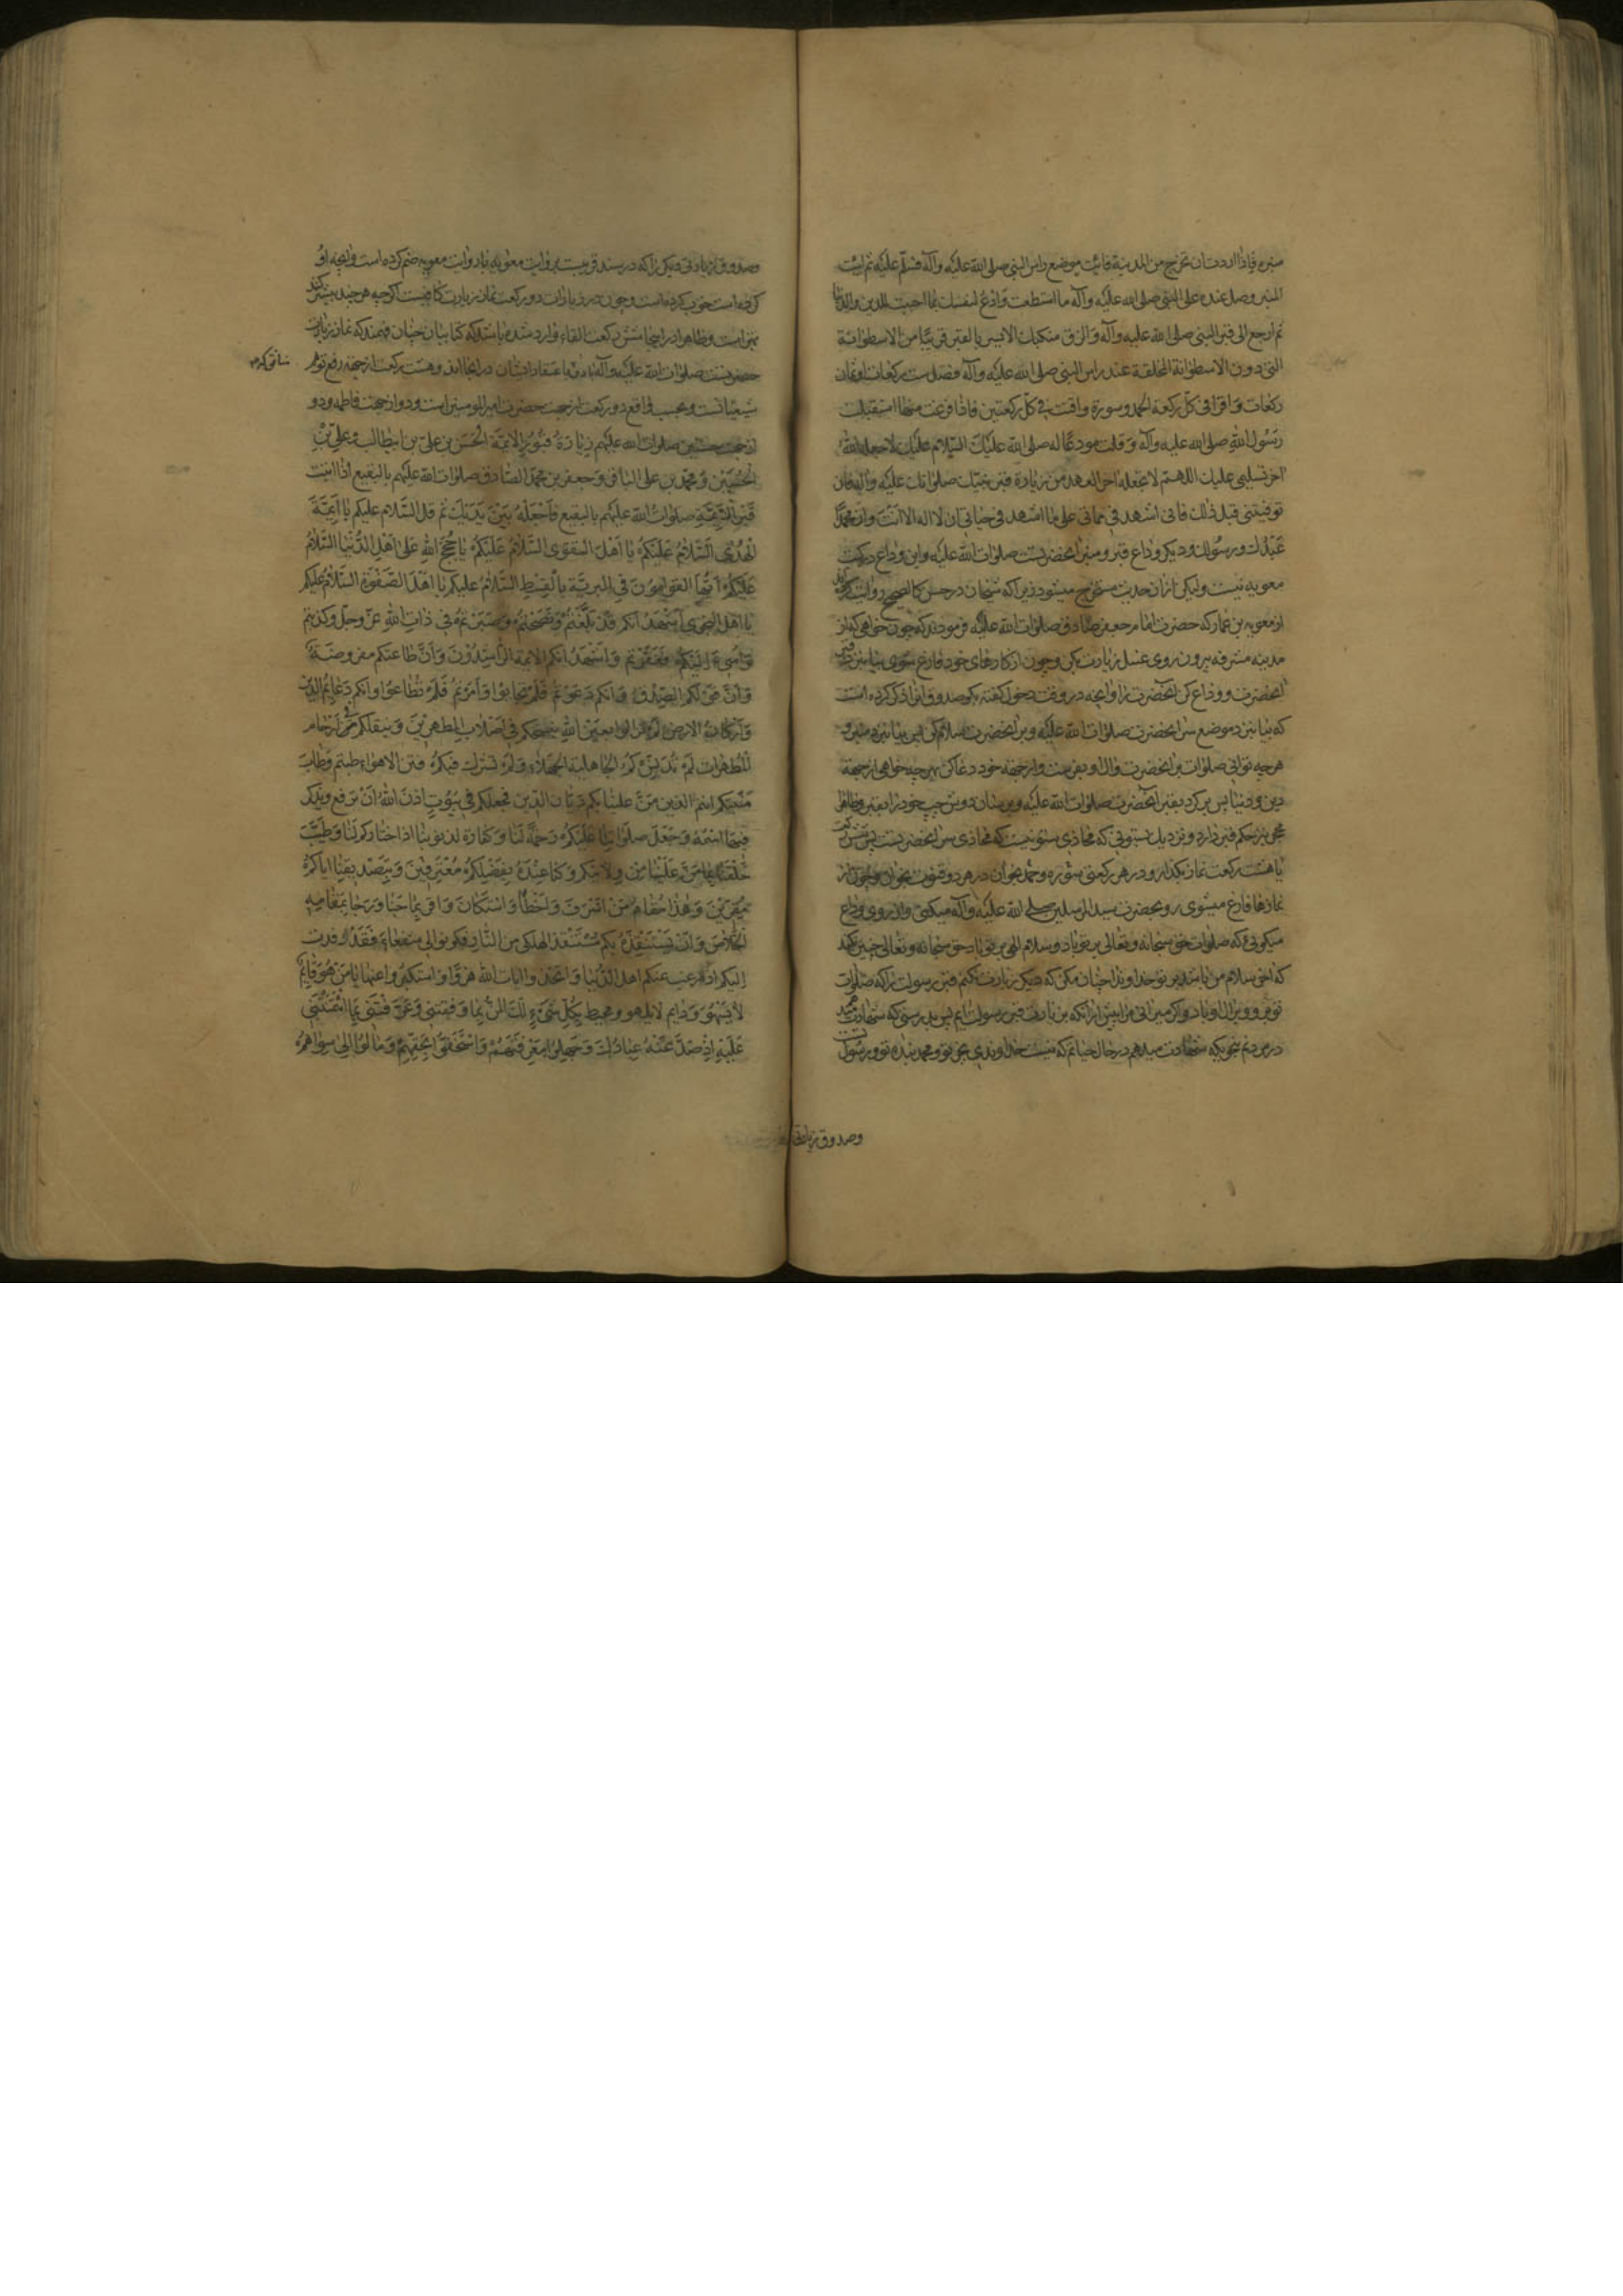 منبره فاذا اردت ان تخرج من المدينة فائت موضع راس النبى صلى الله عليه وآله فسلم عليه ثم ائت
المنبر وصل عنده على النبى صلى الله عليه وآله ما استطعت وادع لنفسك بما احببت للدين والدنيا
ثم ارجع الى قبر النبى صلى الله عليه وآله والزق منكبك الايسر بالقبر قريبا من الاسطوانة
التى دون الاسطوانة المخلقة عند راس النبى صلى الله عليه وآله فصل ست ركعات او ثمان
ركعات واقرا فى كل ركعة الحمد وسورة واقنت فى كل ركعتين فاذا فرغت منها استقبلت
رسول الله صلى الله عليه وآله وقلت مودعا له صلى الله عليك السلام عليك لا جعله الله
اخر تسليمى عليك اللهم لا تجعله اخر العهد من زيارة قبر نبيك صلواتك عليه وآله فان
توفيتنى قبل ذلك فانى اشهد فى مماتى على ما اشهد فى حياتى ان لا اله الا انت وان محمدا
عبدك ورسولك وديكر وداع قبر ومنبر انحضرتست صلوات الله عليه واين وداع در كتب
معويه نيست وليكن از ان حديث مستخرج ميشود زيرا كه شيخان در حسن كالصحيح روايت كرده اند
از معويه بن عمار كه حضرت امام جعفر صادق صلوات الله عليه فرمودند كه چون خواهى كه از
مدينه مشرفه بيرون روى غسل زيارت بكن وچون از كارهاى خود فارغ شوى بيا نزد قبر
انحضرت ووداع كن انحضرت را وانچه در وقت دخول كفته بكو وصدوق اينرا ذكر كرده است
كه بيا نزد موضع سر انحضرت صلوات الله عليه وبر انحضرت سلام كن پس بيا نزد منبر و
هر چه توانى صلوات بر انحضرت وال او بفرست واز جهة خود دعا كن بهر چه خواهى از جهة
دين ودنيا پس بر كرد بقبر انحضرت صلوات الله عليه وبرسان دوش چپ خود را بقبر وظاهرا
محجر نيز حكم قبر دارد ونزديك بستونى كه محاذى ستونيست كه محاذى سر انحضرتست پس شش ركعت
يا هشت ركعت نماز بكذار ودر هر ركعتى سوره وحمد بخوان ودر هر دو قنوت بخوان وچون از
نمازها فارغ ميشوى رو بحضرت سيد المرسلين صلى الله عليه وآله ميكنى واز روى وداع
ميكوئى كه صلوات حق سبحانه وتعالى بر تو باد وسلام الهى بر تو باد حق سبحانه وتعالى چنين نكند
كه اخر سلام من باشد بر تو خداوندا چنان مكن كه ديكر زيارت نكنم قبر رسولت را كه صلوات
تو برو وبر ال او باد واكر ميرانى مرا پيش از انكه بزيارت قبر رسولت ايم پس بدرستى كه شهادت ميدهم
در مردنم بنحويكه شهادت ميدهم در حال حياتم كه نيست خداوندى بجز تو ومحمد بنده تو ورسول تست
وصدوق زيارتى
وصدوق زيارتى ديكر را كه در سند قريبست بروايت معويه باروايت معويه ضم كرده است وانچه او
كرده است خوب كرده است وچون در زيارات دو ركعت نماز زيارت كافيست اكر چه هر چند بيشتر كند
بهتر است وظاهرا در اينجا شش ركعت القاء وارد شده باشد كه كتابيان چنان فهمند كه نماز زيارت
حضرتست صلوات الله عليه وآله با دو نفر باعتقاد ايشان در انجا اند وهشت ركعت از جهة رفع توهم
شيعيانست وبحسب واقع دو ركعت از جهت حضرت امير المومنين است ودو از جهت فاطمه ودو
از جهت حسنين صلوات الله عليهم زيارة قبور الائمة الحسن بن على بن ابيطالب وعلى بن
الحسين ومحمد بن على الباقر وجعفر بن محمد الصادق صلوات الله عليهم بالبقيع اذا اتيت
قبر الائمة صلوات الله عليهم بالبقيع فاجعله بين يديك ثم قل السلام عليكم يا ائمة
الهدى السلام عليكم يا اهل التقوى السلام عليكم يا حجج الله على اهل الدنيا السلام
عليكم ايها القوامون فى البرية بالقسط السلام عليكم يا اهل الصفوة السلام عليكم
يا اهل النجوى اشهد انكم قد بلغتم ونصحتم وصبرتم فى ذات الله عز وجل وكذبتم
واسىء اليكم فغفرتم واشهد انكم الائمة الراشدون وان طاعتكم مفروضة
وان قولكم الصدق وانكم دعوتم فلم تجابوا وامرتم فلم تطاعوا وانكم دعائم الدين
واركان الارض لم تزالوا بعين الله ينسخكم فى اصلاب المطهرين وينقلكم فى ارحام
المطهرات لم تدنسكم الجاهلية الجهلاء ولم تشرك فيكم فتن الاهواء طبتم وطاب
منبتكم انتم الذين من علينا بكم ديان الدين فجعلكم فى بيوت اذن الله ان ترفع ويذكر
فيها اسمه وجعل صلواتنا عليكم رحمة لنا وكفارة لذنوبنا اذا اختاركم لنا وطيب
خلقنا بما من علينا من ولايتكم وكنا عنده بفضلكم معترفين وبتصديقنا اياكم
مقرين وهذا مقام من اسرف واخطأ واستكان واقر بما جنا ورجا بمقامه
الخلاص وان يستنقذه بكم مستنقذ الهلكى من النار فكونوا لى شفعاء فقد وفدت
اليكم اذ رغب عنكم اهل الدنيا واتخذوا ايات الله هزوا واستكبروا عنها يا من هو قائم
لا يسهو ودايم لا يلهو ومحيط بكل شىء لك المن بما وفقتنى وعرفتنى بما ائتمنتنى
عليه اذ صد عنه عبادك وجهلوا معرفتهم واستخفوا بحقهم ومالوا الى سواهم